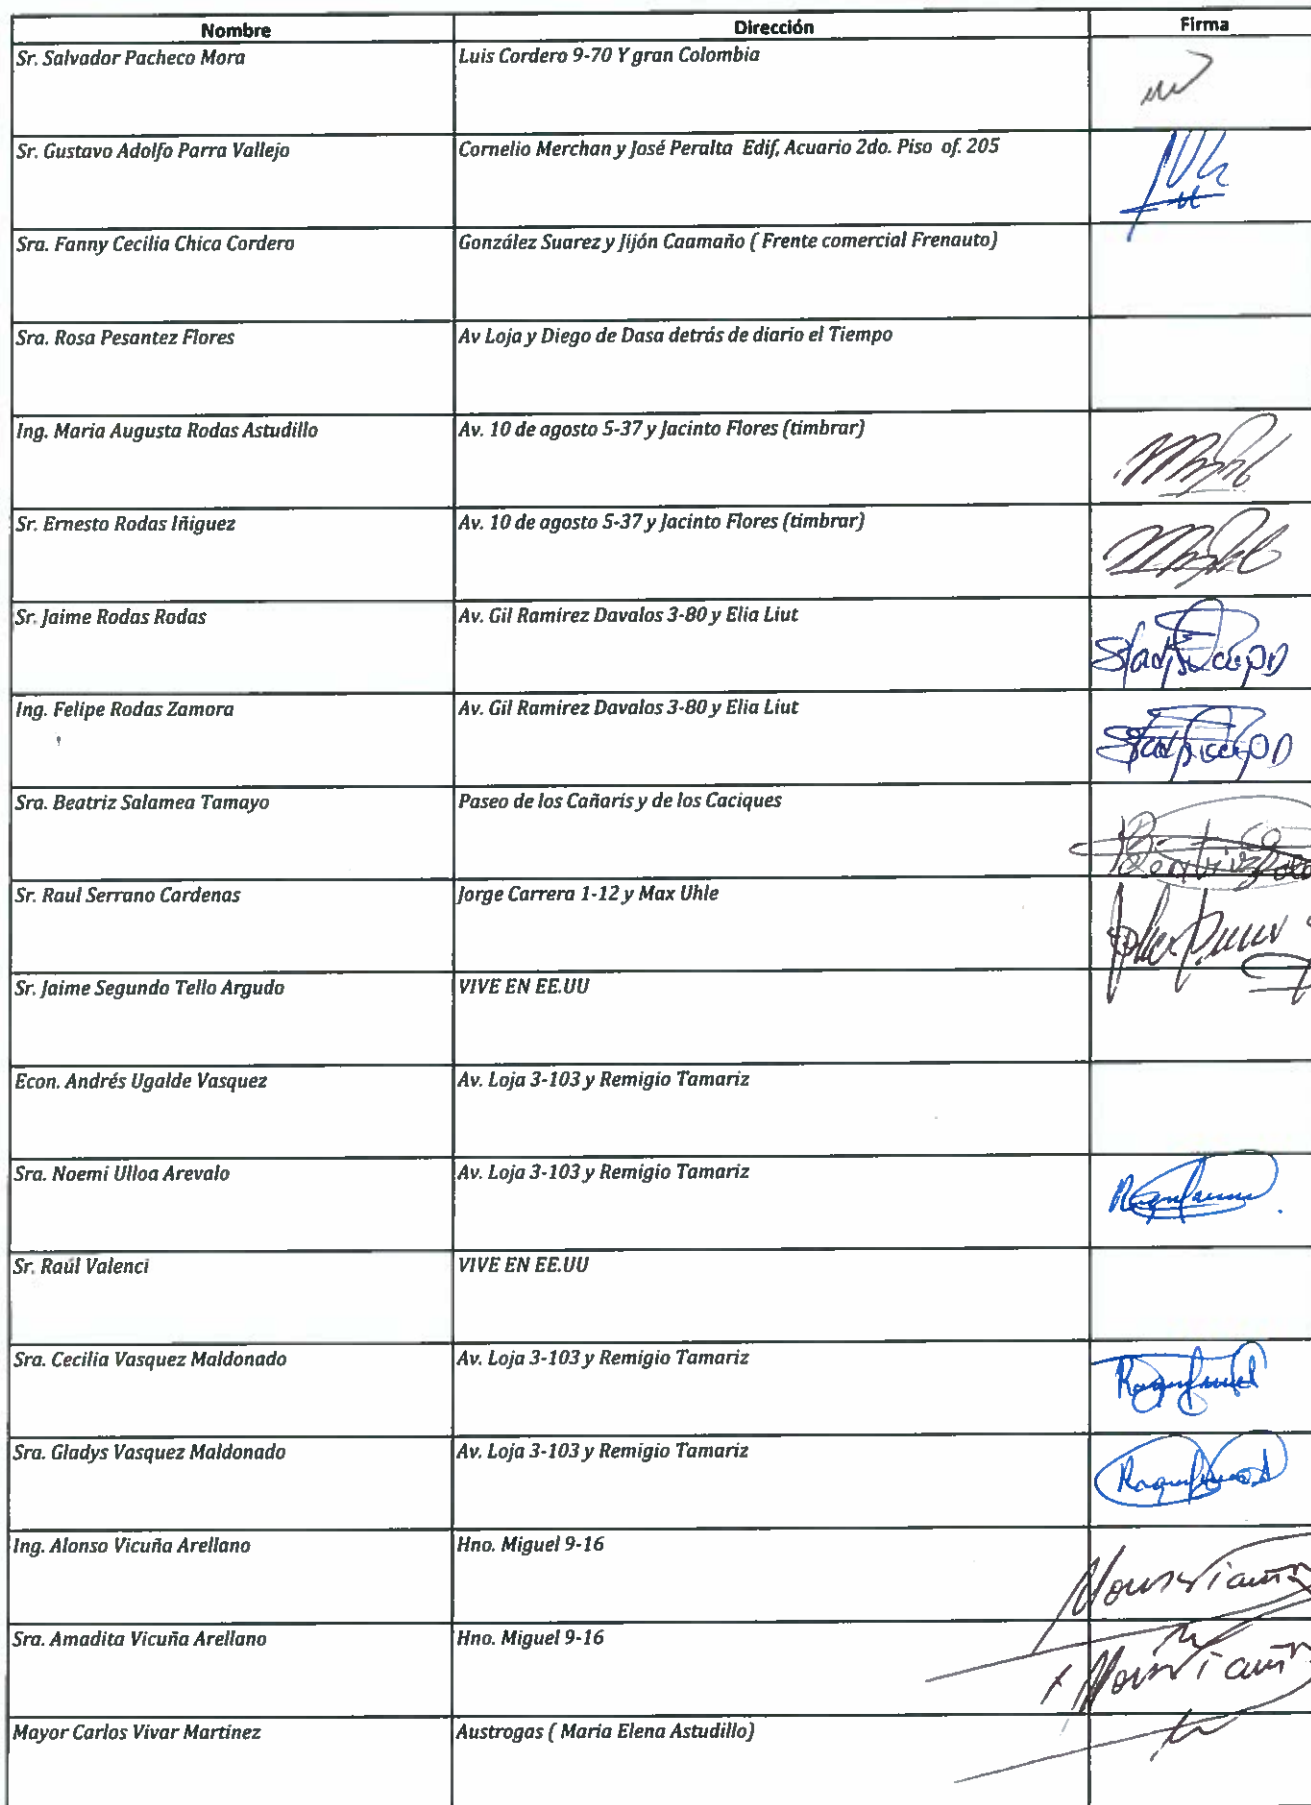 Nombre Dirección Firma
Sr. Salvador Pacheco Mora Luis Cordero 9-70 Y gran Colombia
Sr. Gustavo Adolfo Parra Vallejo Cornelio Merchan y José Peralta Edif, Acuario 2do. Piso of. 205
Sra. Fanny Cecilia Chica Cordero González Suarez y Jijón Caamaño ( Frente comercial Frenauto)
Sra. Rosa Pesantez Flores Av Loja y Diego de Dasa detrás de diario el Tiempo
Ing. Maria Augusta Rodas Astudillo Av. 10 de agosto 5-37 y Jacinto Flores (timbrar)
Sr. Ernesto Rodas Iñiguez Av. 10 de agosto 5-37 y Jacinto Flores (timbrar)
Sr. Jaime Rodas Rodas Av. Gil Ramirez Davalos 3-80 y Elia Liut
Ing. Felipe Rodas Zamora Av. Gil Ramirez Davalos 3-80 y Elia Liut
Sra. Beatriz Salamea Tamayo Paseo de los Cañaris y de los Caciques
Sr. Raul Serrano Cardenas Jorge Carrera 1-12 y Max Uhle
Sr. Jaime Segundo Tello Argudo VIVE EN EE.UU
Econ. Andrés Ugalde Vasquez Av. Loja 3-103 y Remigio Tamariz
Sra. Noemi Ulloa Arevalo Av. Loja 3-103 y Remigio Tamariz
Sr. Raúl Valenci VIVE EN EE.UU
Sra. Cecilia Vasquez Maldonado Av. Loja 3-103 y Remigio Tamariz
Sra. Gladys Vasquez Maldonado Av. Loja 3-103 y Remigio Tamariz
Ing. Alonso Vicuña Arellano Hno. Miguel 9-16
Sra. Amadita Vicuña Arellano Hno. Miguel 9-16
Mayor Carlos Vivar Martinez Austrogas ( Maria Elena Astudillo)